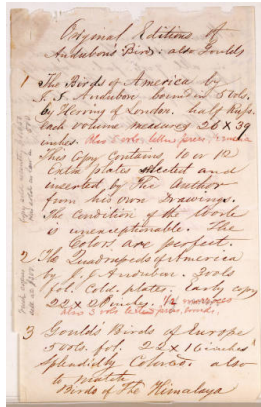 Original Editions of
Audubon's Birds: also Goulds
1 The Birds of America by
J. J. Audubon bound in 5 vols.
by Hering of London. half Russ.
Each volume measures 26 X 39
inches. Also 5 vols. letter press
This Copy Contains 10 or 12
extra plates selected and
inserted by The Author
from his own Drawings.
The Condition of the Work
is unexceptionable. The
Colors are perfect.
2 The Quadrupeds of America
by J. J. Audubon. 2 vols
fol. Cold. plates. Early copy
22 X 28 inches. 1/2 morocco
also 3 vols letter press, bound.
3 Gould's Birds of Europe
5 vols. fol. 22 X 16 inches
splendidly Colored. also
to match
Birds of The Himalaya